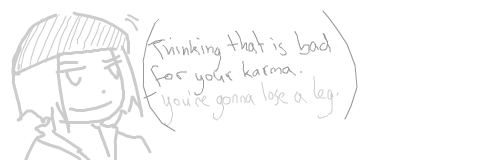 Thinking that is bad
for your karma.
you're gonna lose a leg.